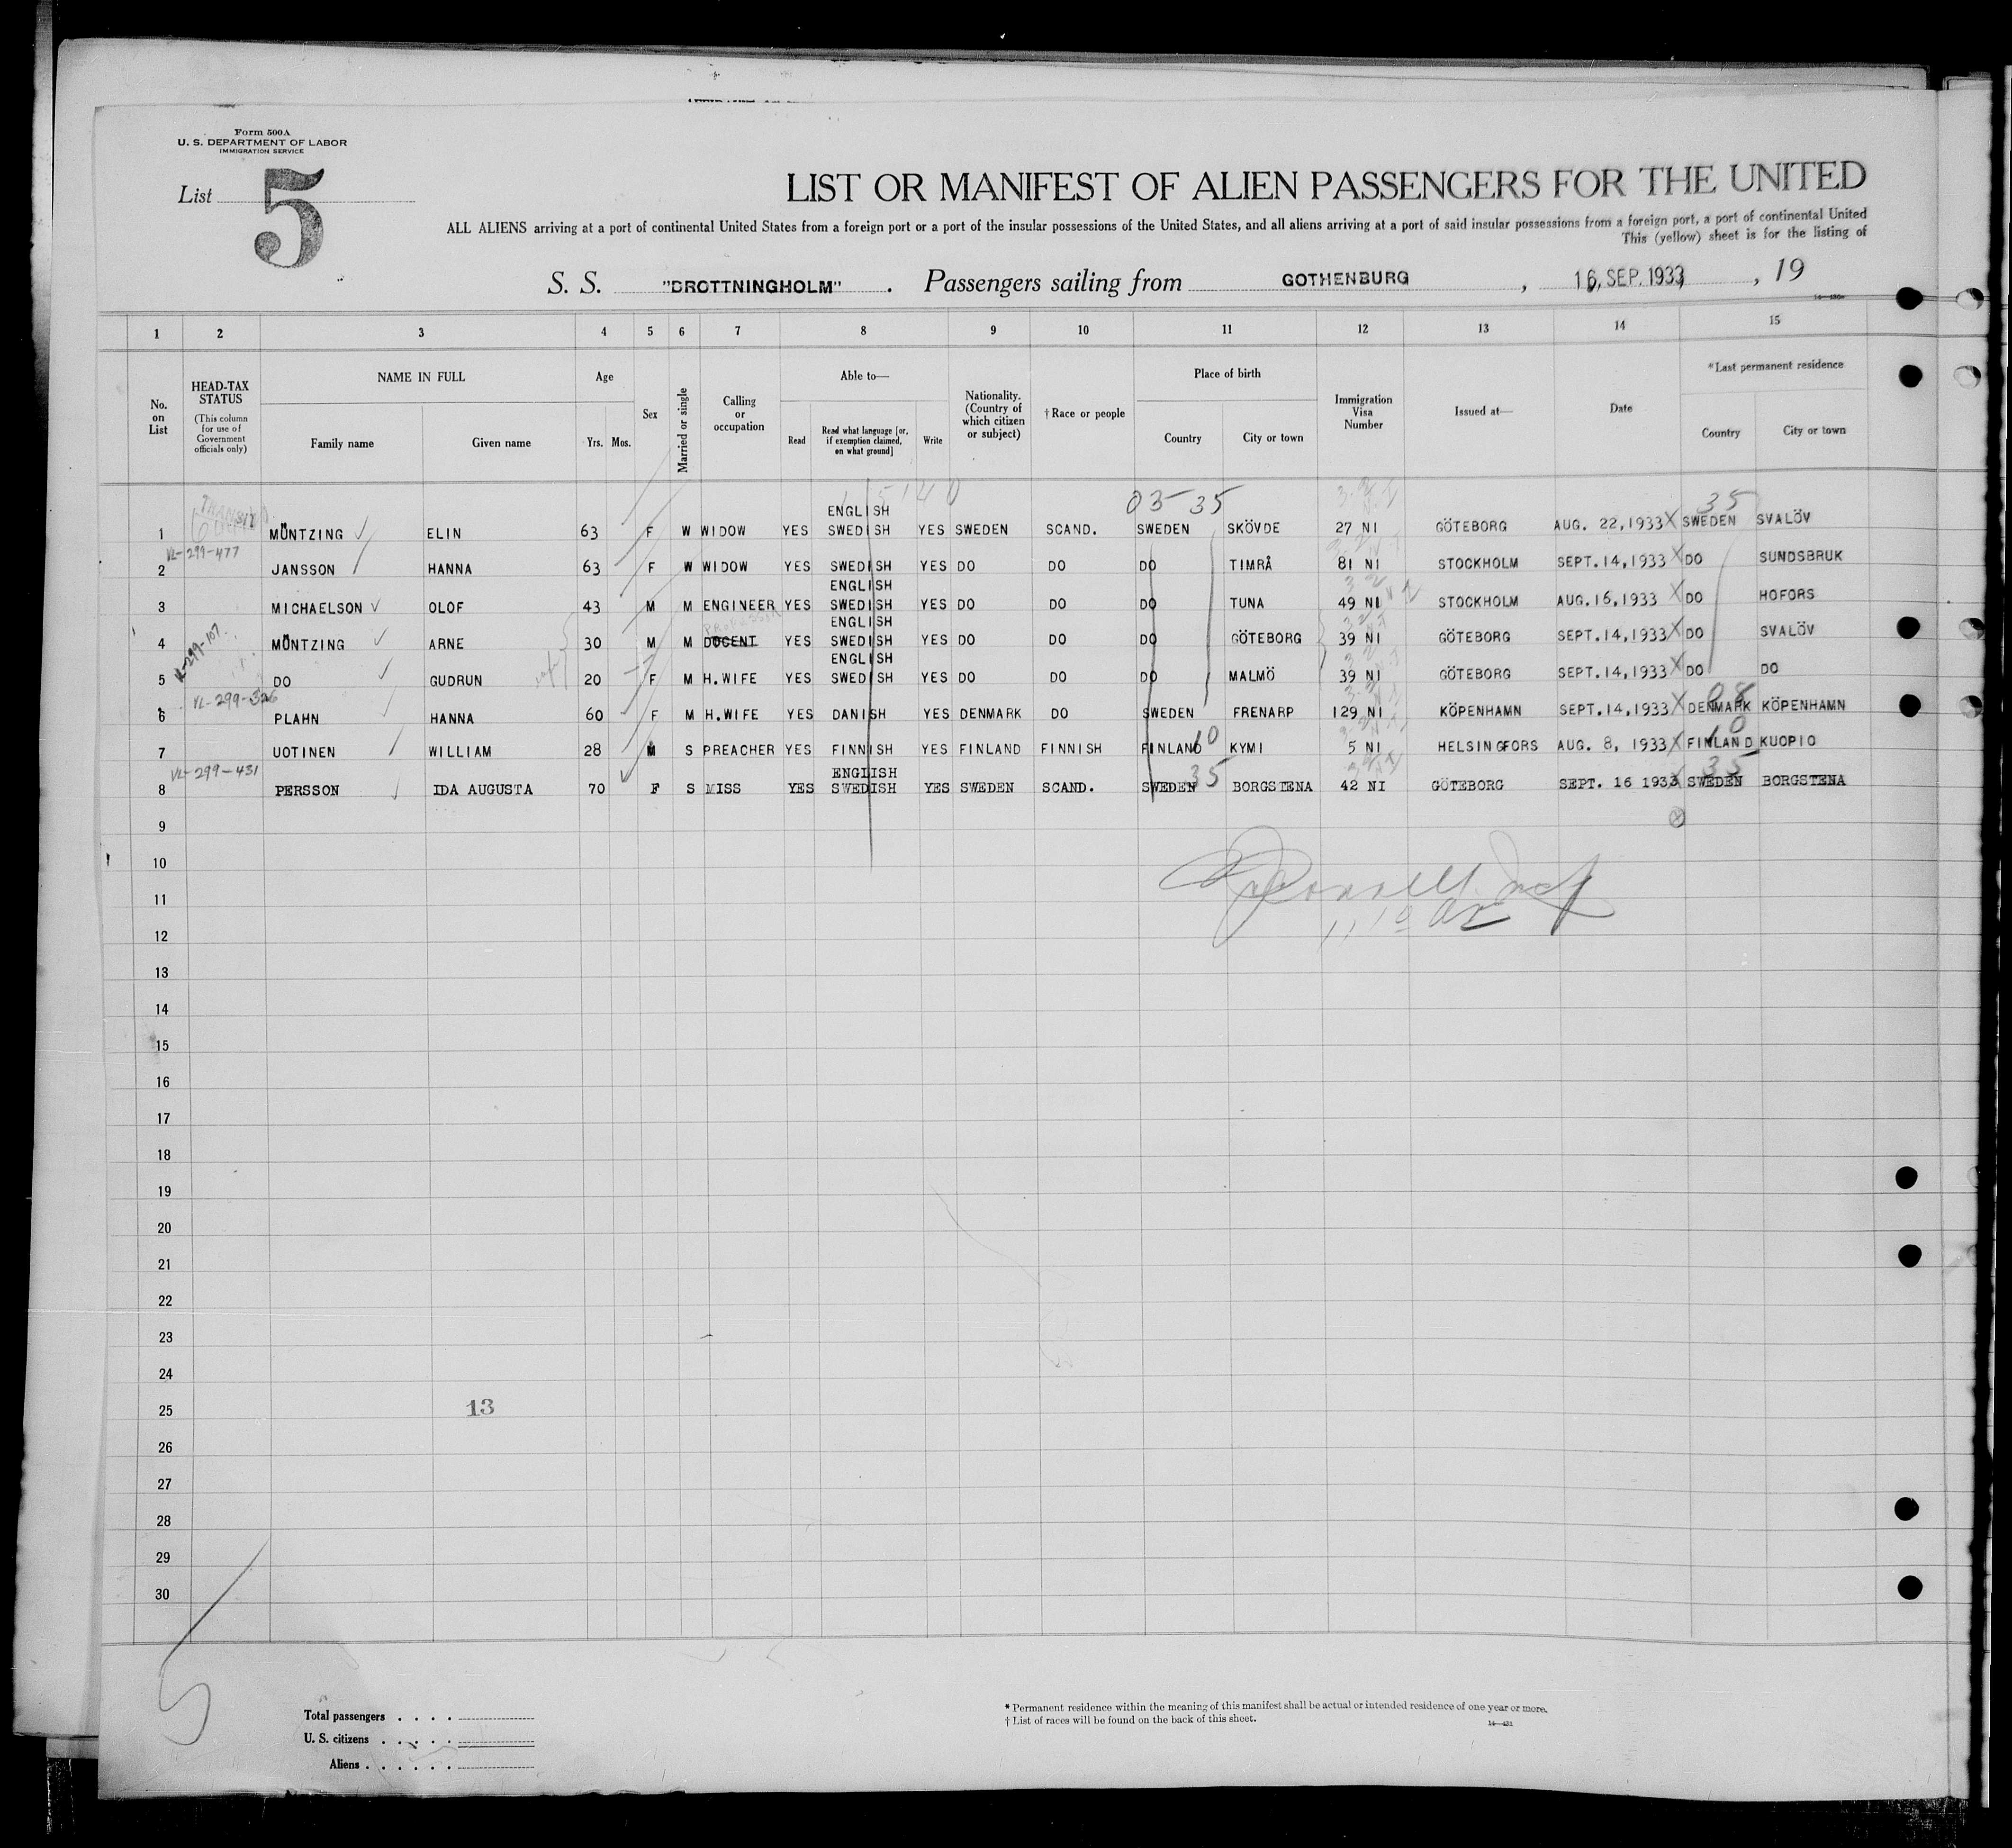 Form 500A
U. S. DEPARTMENT OF LABOR
IMMIGRATION SERVICE
List 5
LIST OR MANIFEST OF ALIEN PASSENGERS FOR THE UNITED
ALL ALIENS arriving at a port of continental United States from a foreign port or a port of the insular possessions of the United States, and all aliens arriving at a port of said insular possessions from a foreign port, a port of continental United
This (yellow) sheet is for the listing of
S. S. "DROTTNINGHOLM" . Passengers sailing from GOTHENBURG , 16. SEP. 1933 , 19
1 2 3 4 5 6 7 8 9 10 11 12 13 14 15
No. on List
HEAD-TAX STATUS (This column for use of Government officials only)
NAME IN FULL
Family name Given name
Age
Yrs. Mos.
Sex
Married or single
Calling or occupation
Able to—
Read Read what language [or, if exemption claimed, on what ground] Write
Nationality. (Country of which citizen or subject)
† Race or people
Place of birth
Country City or town
Immigration Visa Number
Issued at—
Date
*Last permanent residence
Country City or town
03-35 35
TRANSIT
1 MÜNTZING ELIN 63 F W WIDOW YES ENGLISH SWEDISH YES SWEDEN SCAND. SWEDEN SKÖVDE 27 NI GÖTEBORG AUG. 22,1933 SWEDEN SVALÖV
VL-299-477
2 JANSSON HANNA 63 F W WIDOW YES SWEDISH YES DO DO DO TIMRÅ 81 NI STOCKHOLM SEPT.14,1933 DO SUNDSBRUK
3 MICHAELSON OLOF 43 M M ENGINEER YES ENGLISH SWEDISH YES DO DO DO TUNA 49 NI STOCKHOLM AUG.16,1933 DO HOFORS
VL-299-107
PROFESSOR
4 MÜNTZING ARNE 30 M M DOCENT YES ENGLISH SWEDISH YES DO DO DO GÖTEBORG 39 NI GÖTEBORG SEPT.14,1933 DO SVALÖV
5 DO GUDRUN 20 F M H.WIFE YES ENGLISH SWEDISH YES DO DO DO MALMÖ 39 NI GÖTEBORG SEPT.14,1933 DO DO
VL-299-326 08
6 PLAHN HANNA 60 F M H.WIFE YES DANISH YES DENMARK DO SWEDEN FRENARP 129 NI KÖPENHAMN SEPT.14,1933 DENMARK KÖPENHAMN
10 10
7 UOTINEN WILLIAM 28 M S PREACHER YES FINNISH YES FINLAND FINNISH FINLAND KYMI 5 NI HELSINGFORS AUG. 8, 1933 FINLAND KUOPIO
VL-299-431 35 35
8 PERSSON IDA AUGUSTA 70 F S MISS YES ENGLISH SWEDISH YES SWEDEN SCAND. SWEDEN BORGSTENA 42 NI GÖTEBORG SEPT. 16 1933 SWEDEN BORGSTENA
9
10
11
12
13
14
15
16
17
18
19
20
21
22
23
24
25 13
26
27
28
29
30
5
Total passengers
U. S. citizens
Aliens
* Permanent residence within the meaning of this manifest shall be actual or intended residence of one year or more.
† List of races will be found on the back of this sheet.